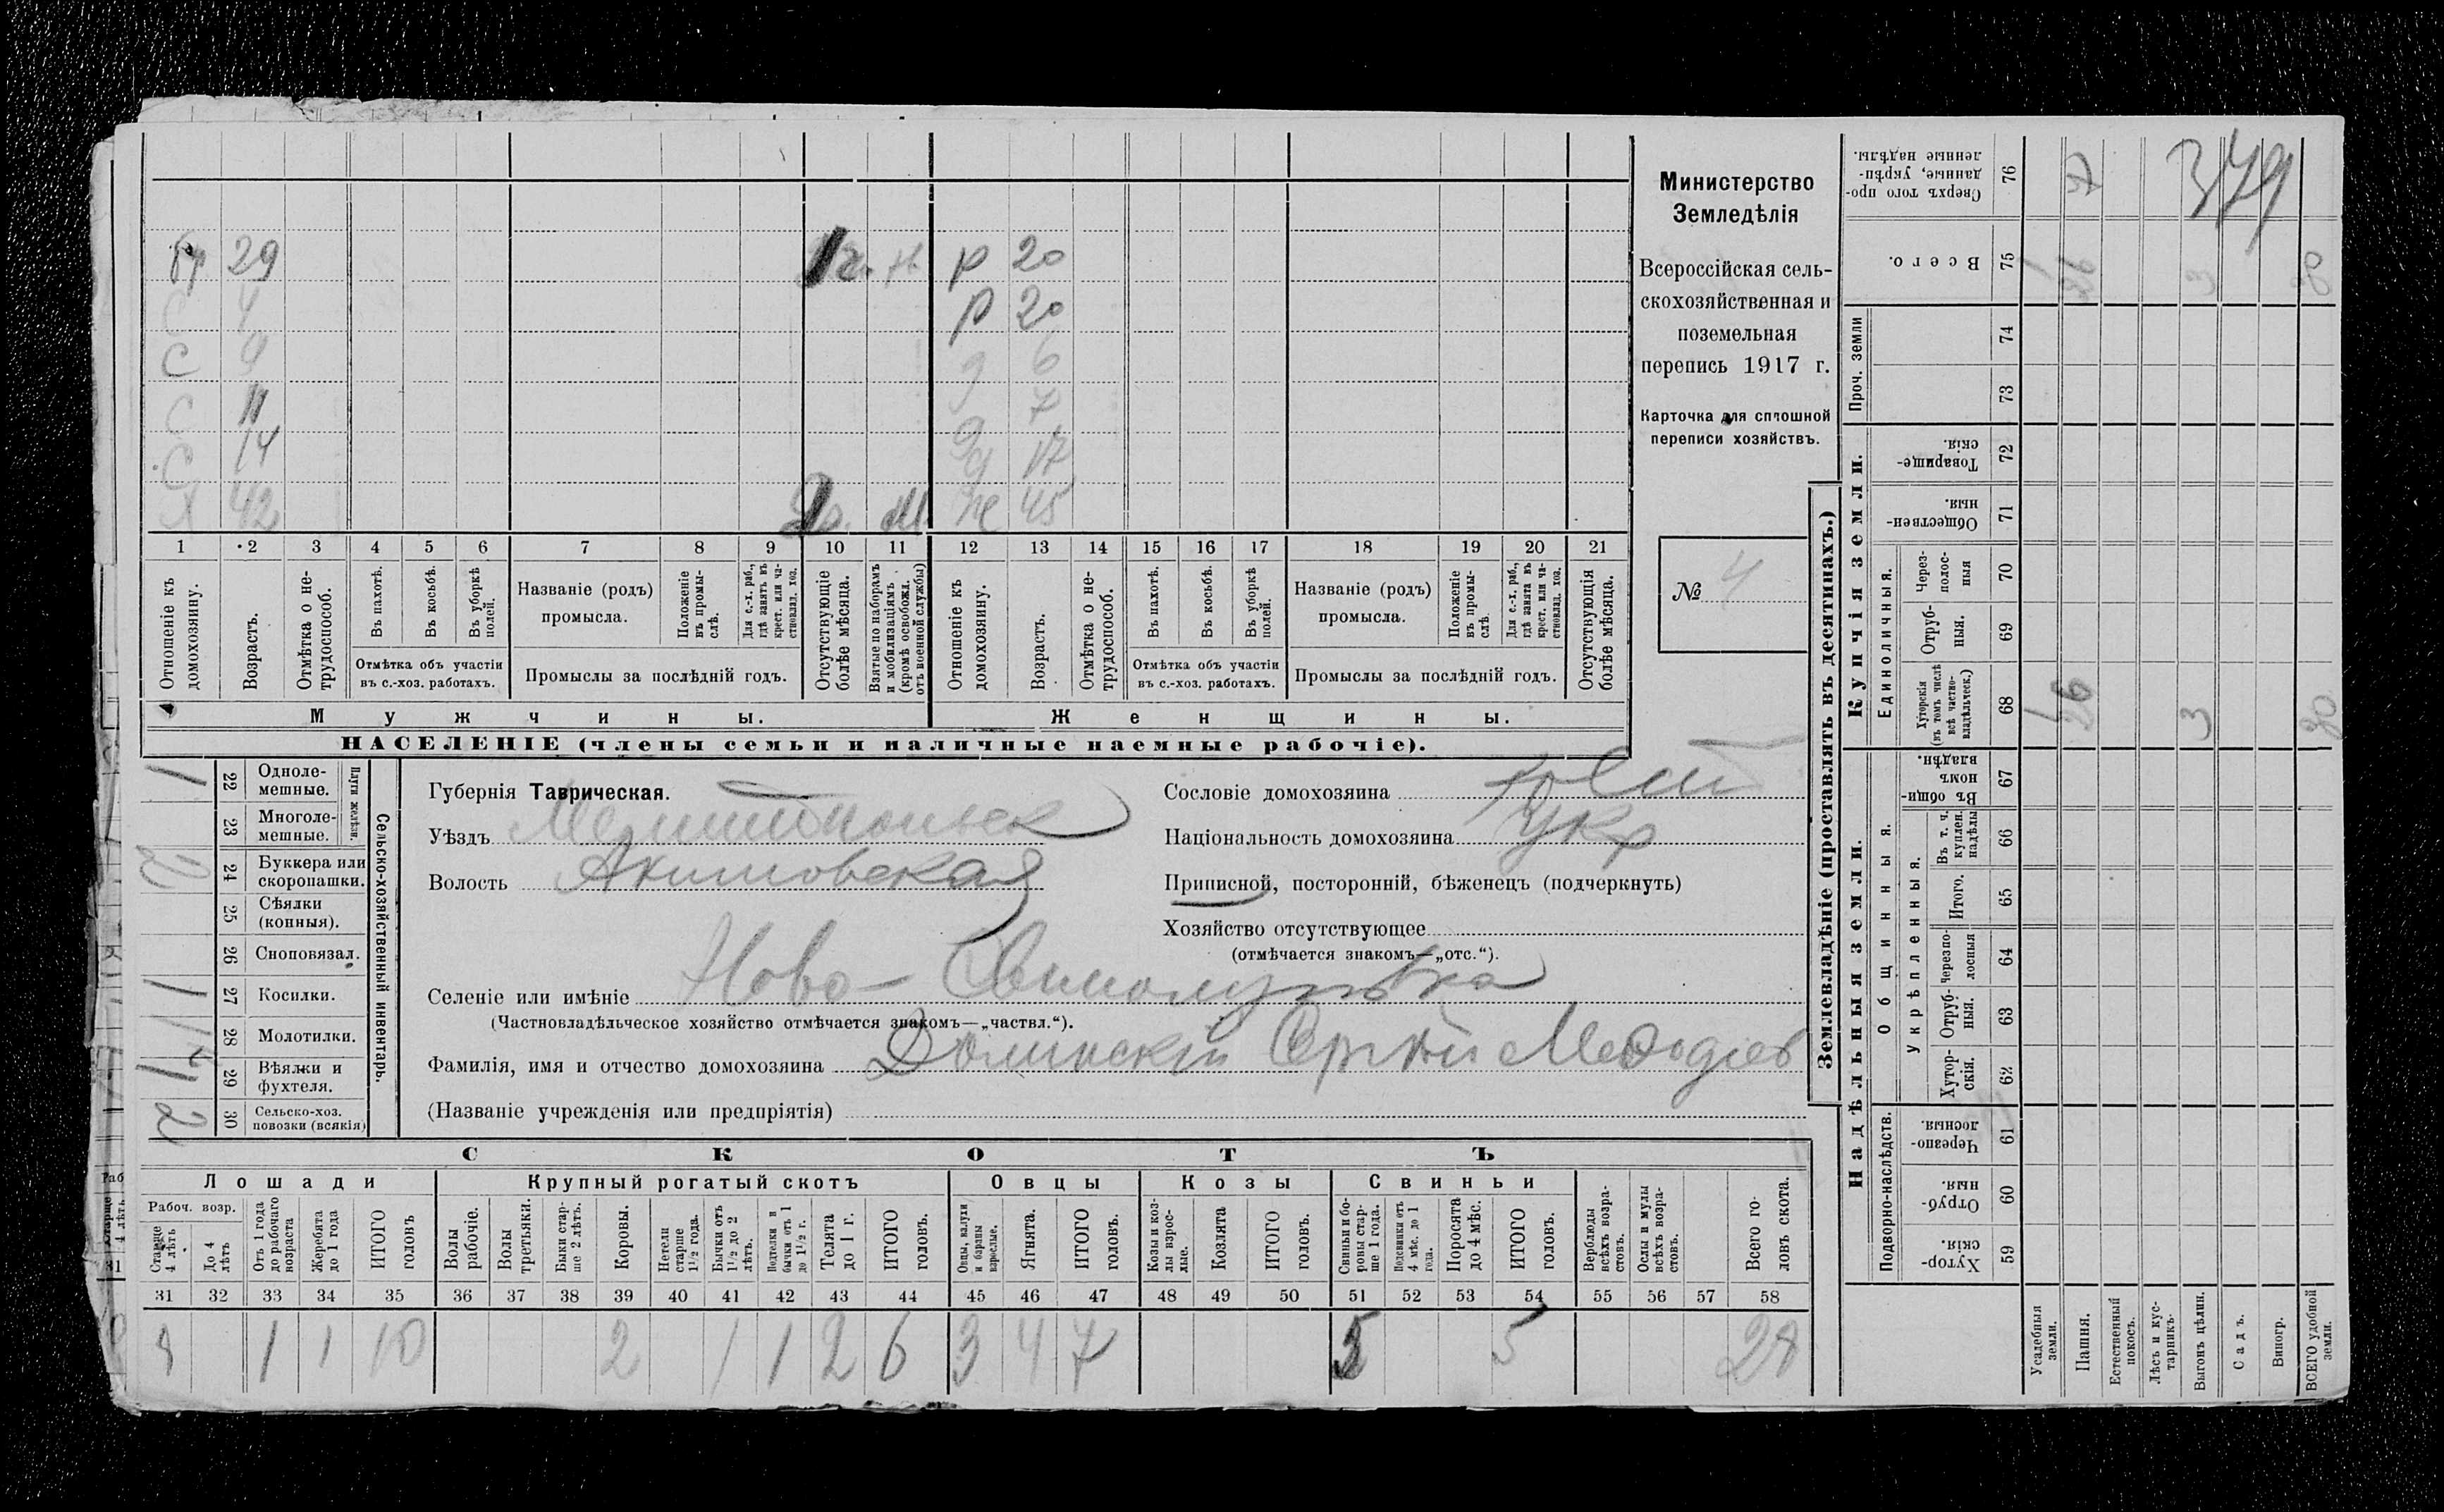 Министерство
Земледѣлія
Всероссійская сель-
скохозяйственная и
поземельная
перепись 1917 г.
Карточка для сплошной
переписи хозяйствъ.
№ 4
бр 29 р 20
С 4 р 20
С 9 д 6
С 11 д 7
С 14 д 17
Х 42 М. ж 45
1 2 3 4 5 6 7 8 9 10 11 12 13 14 15 16 17 18 19 20 21
Отношеніе къ домохозяину.
Возрастъ.
Отмѣтка о не-
трудоспособ.
Въ пахотѣ.
Въ косьбѣ.
Въ уборкѣ полей.
Отмѣтка объ участіи
въ с.-хоз. работахъ.
Названіе (родъ)
промысла.
Положеніе въ промы-
слѣ.
Для с.-х. раб.,
гдѣ занятъ въ
крест. или ча-
стновлад. хоз.
Промыслы за послѣдній годъ.
Отсутствующіе
болѣе мѣсяца.
Взятые по наборамъ
и мобилизаціямъ
(кромѣ освобожд.
отъ военной службы)
Отношеніе къ
домохозяину.
Возрастъ.
Отмѣтка о не-
трудоспособ.
Въ пахотѣ.
Въ косьбѣ.
Въ уборкѣ
полей.
Отмѣтка объ участіи
въ с.-хоз. работахъ.
Названіе (родъ)
промысла.
Положеніе
въ промы-
слѣ.
Для с.-х. раб.,
гдѣ занята въ
крест. или ча-
стновлад. хоз.
Промыслы за послѣдній годъ.
Отсутствующія
болѣе мѣсяца.
Мужчины.
Женщины.
НАСЕЛЕНІЕ (члены семьи и наличные наемные рабочіе).
Сельско-хозяйственный инвентарь.
1 22 Одноле-
мешные.
23 Многоле-
мешные.
24 Буккера или
скоропашки.
25 Сѣялки
(конныя).
26 Сноповязал.
1 27 Косилки.
28 Молотилки.
1 29 Вѣялки и
фухтеля.
2 30 Сельско-хоз.
повозки (всякія)
Губернія Таврическая.
Уѣздъ Мелитопольск
Волость Акимовская
Сословіе домохозяина
Національность домохозяина Укр
Приписной, посторонній, бѣженецъ (подчеркнуть)
Хозяйство отсутствующее
(отмѣчается знакомъ—„отс.“).
Селеніе или имѣніе Ново-
(Частновладѣльческое хозяйство отмѣчается знакомъ—„частвл.“).
Фамилія, имя и отчество домохозяина Долинскій Сергѣй Меѳодіев
(Названіе учрежденія или предпріятія)
СКОТЪ
Лошади
Крупный рогатый скотъ
Овцы
Козы
Свиньи
Рабоч. возр.
Старше
4 лѣтъ
До 4
лѣтъ
Отъ 1 года
до рабочаго
возраста
Жеребята
до 1 года
ИТОГО
головъ
Волы
рабочіе.
Волы
третьяки.
Быки стар-
ше 2 лѣтъ.
Коровы.
Нетели
старше
1½ года.
Бычки отъ
1½ до 2
лѣтъ.
Подтелки и
бычки отъ 1
до 1½ г.
Телята
до 1 г.
ИТОГО
головъ.
Овцы, валухи
и бараны
взрослые.
Ягнята.
ИТОГО
головъ.
Козы и коз-
лы взрос-
лые.
Козлята
ИТОГО
головъ.
Свиньи и бо-
ровы стар-
ше 1 года.
Подсвинки отъ
4 мѣс. до 1
года.
Поросята
до 4 мѣс.
ИТОГО
головъ.
Верблюды
всѣхъ возра-
стовъ.
Ослы и мулы
всѣхъ возра-
стовъ.
Всего го-
ловъ скота.
31 32 33 34 35 36 37 38 39 40 41 42 43 44 45 46 47 48 49 50 51 52 53 54 55 56 57 58
8 1 1 10 2 1 1 2 6 3 4 7 5 5 28
Землевладѣніе (проставлять въ десятинахъ.)
Надѣльныя земли.
Купчія земли.
Проч. земли
Подворно-наслѣдств.
Общинныя.
Укрѣпленныя.
Единоличныя.
Сверхъ того про-
данные, укрѣп-
ленные надѣлы. 76 7
379
Всего. 75 1 26 3 30
74
73
Товарище-
скія. 72
Обществен-
ныя. 71
Через-
полос-
ныя 70
Отруб-
ныя. 69
Хуторскія
(въ томъ числѣ
всѣ частно-
владѣльческ.) 68 1 26 3 30
Въ общи-
номъ
владѣн. 67
Въ т. ч.
куплен.
надѣлы 66
Итого. 65
Черезпо-
лосныя 64
Отруб-
ныя. 63
Хутор-
скія. 62
Черезпо-
лосныя. 61
Отруб-
ныя. 60
Хутор-
скія. 59
Усадебныя
земли.
Пашня.
Естественный
покосъ.
Лѣсъ и кус-
тарникъ.
Выгонъ цѣлин.
Садъ.
Виногр.
ВСЕГО удобной
земли.